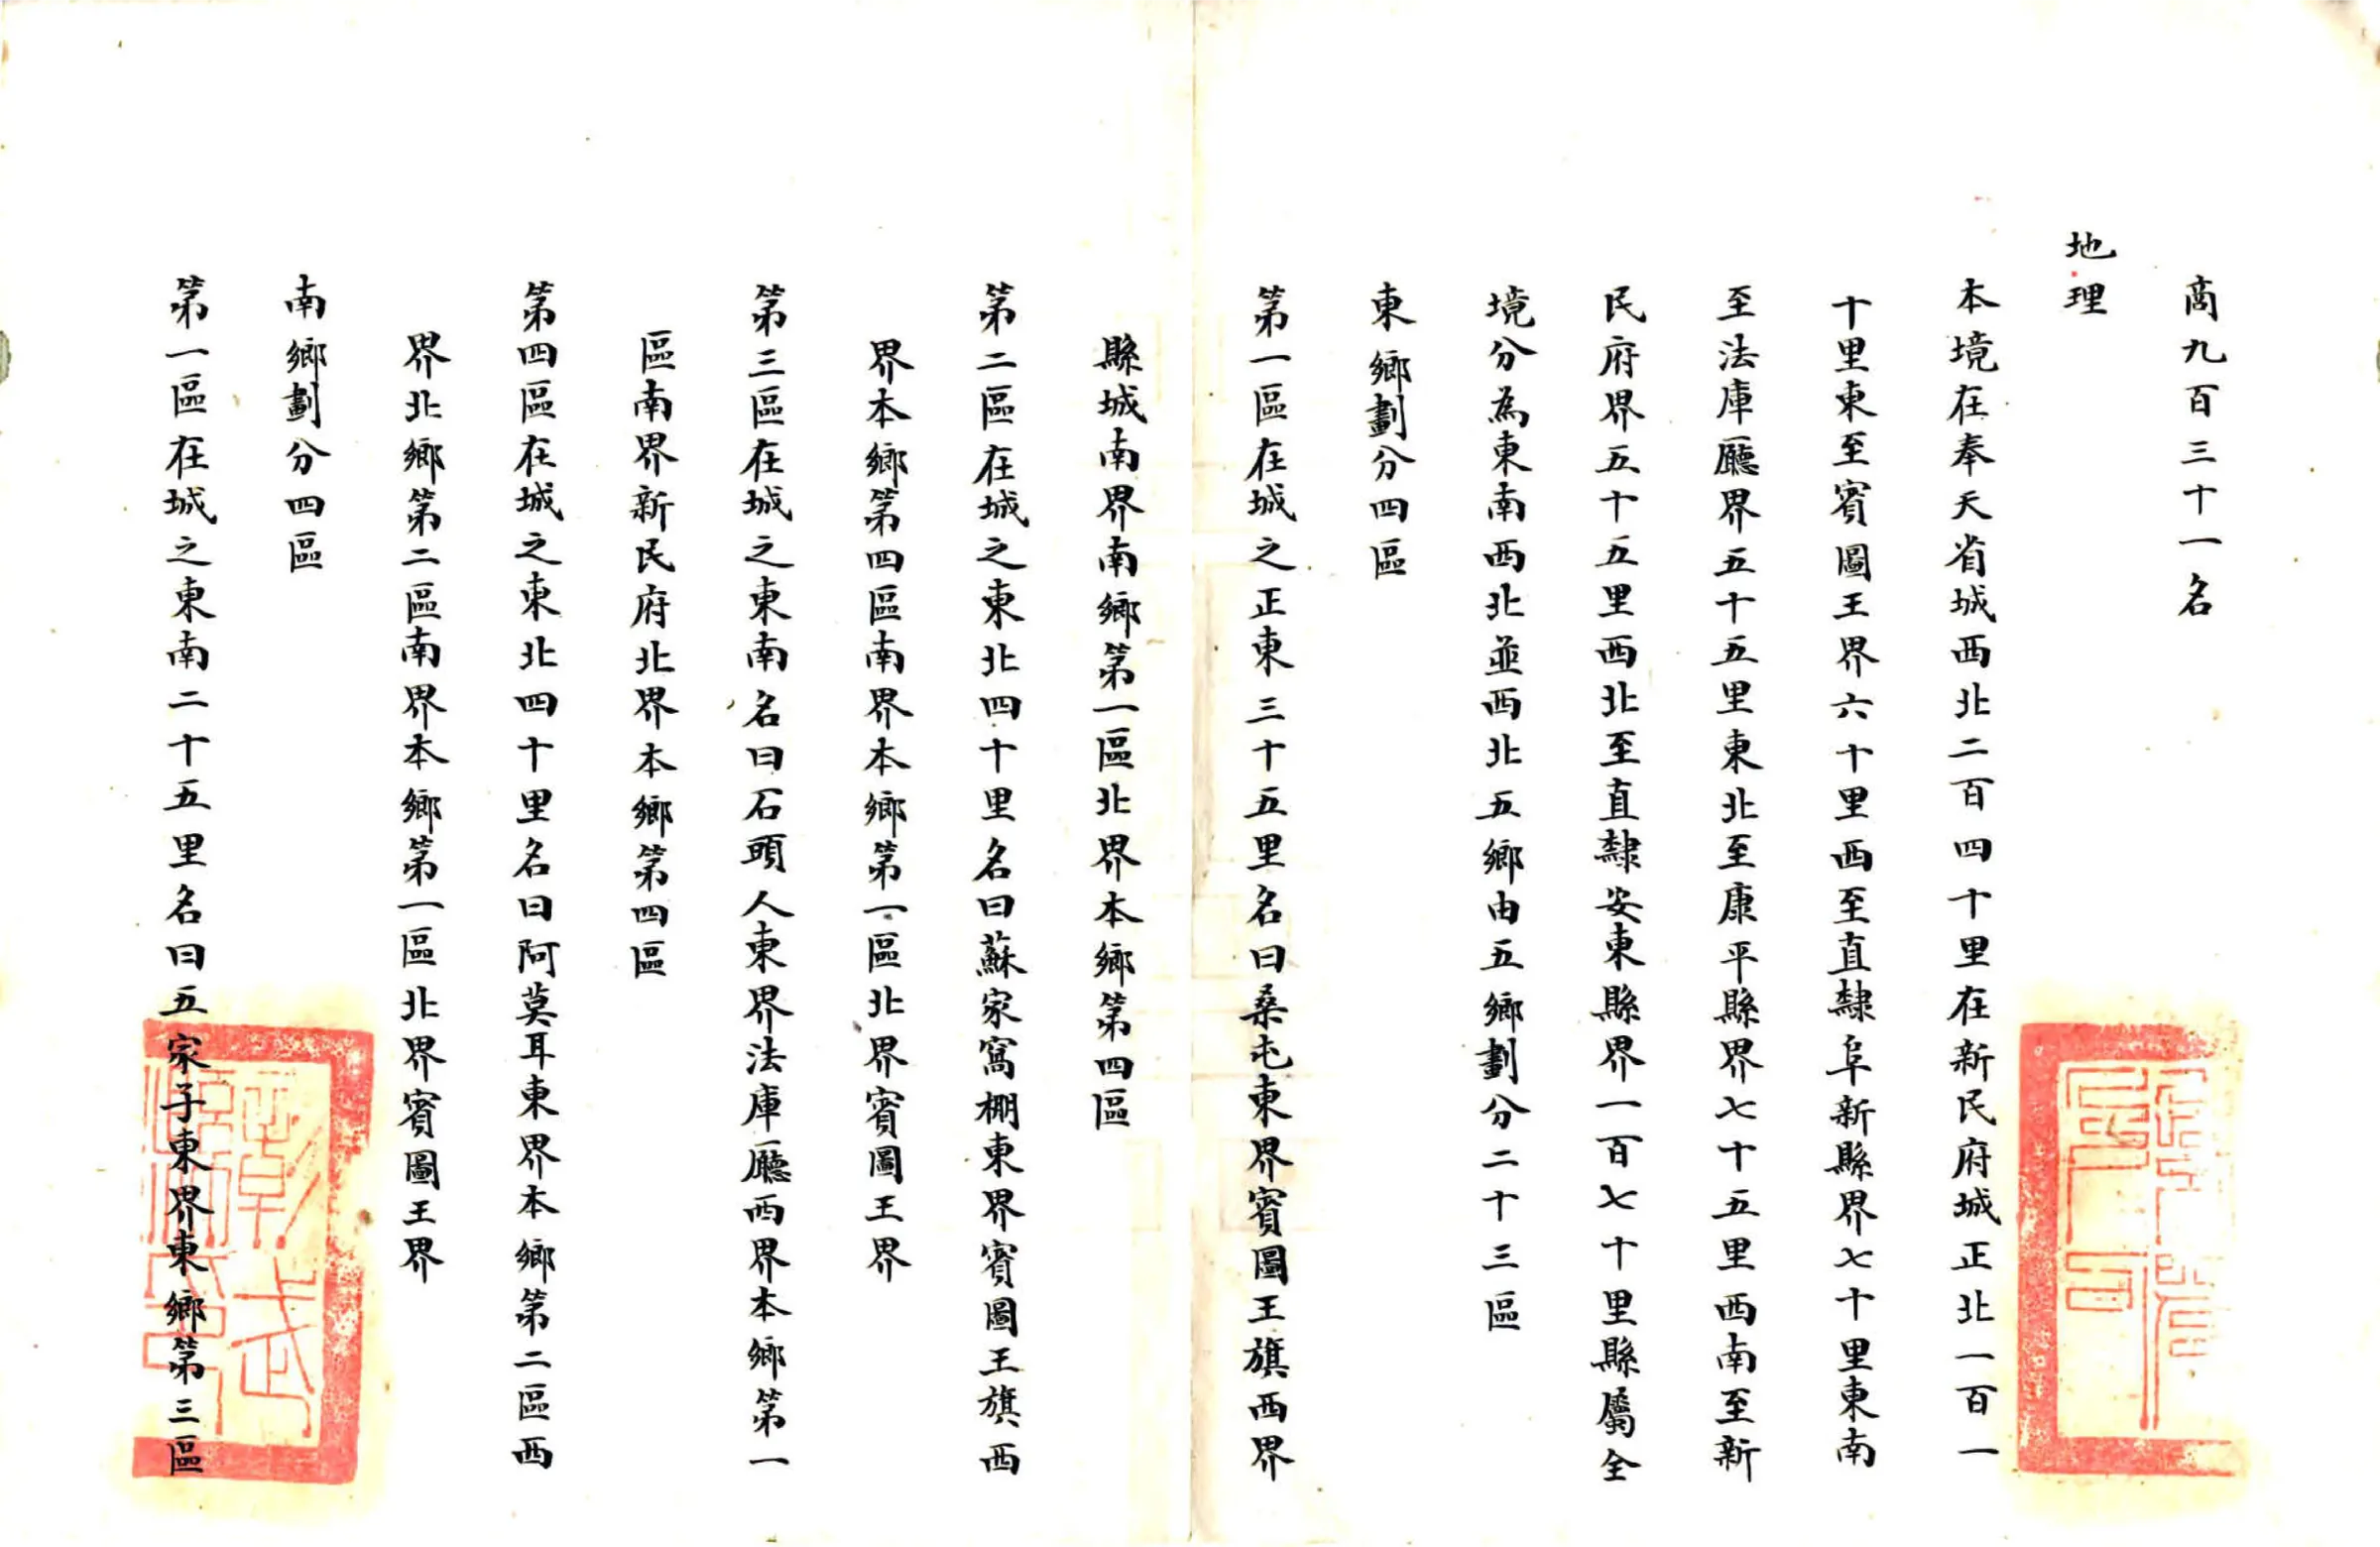 商九百三十一名
地理
本境在奉天省城西北二百四十里在新民府城正北一百一
十里東至賓圖王界六十里西至直隸阜新縣界七十里東南
至法庫廳界五十五里東北至康平縣界七十五里西南至新
民府界五十五里西北至直隸安東縣界一百七十里縣屬全
境分為東南西北並西北五鄉由五鄉劃分二十三區
東鄉劃分四區
第一區在城之正東三十五里名曰桑屯東界賓圖王旗西界
縣城南界南鄉第一區北界本鄉第四區
第二區在城之東北四十里名曰蘇家窩棚東界賓圖王旗西
界本鄉第四區南界本鄉第一區北界賓圖王界
第三區在城之東南名曰石頭人東界法庫廳西界本鄉第一
區南界新民府北界本鄉第四區
第四區在城之東北四十里名曰阿莫耳東界本鄉第二區西
界北鄉第二區南界本鄉第一區北界賓圖王界
南鄉劃分四區
第一區在城之東南二十五里名曰五家子東界東鄉第三區